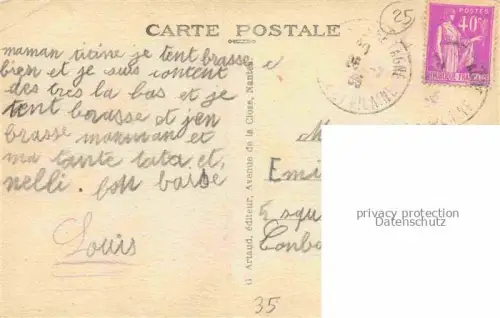 CARTE POSTALE
maman titine je tent brasse
bien et je suis content
des très la bas et je
tent bordasse et jen
brasse mamman et
ma tante tata et
nelli. bon
Louis
G. Artaud, éditeur, Avenue de la Close, Nantes
25
POSTES
40c
M
Emi
5 squ
Combo
privacy protection
Datenschutz
35